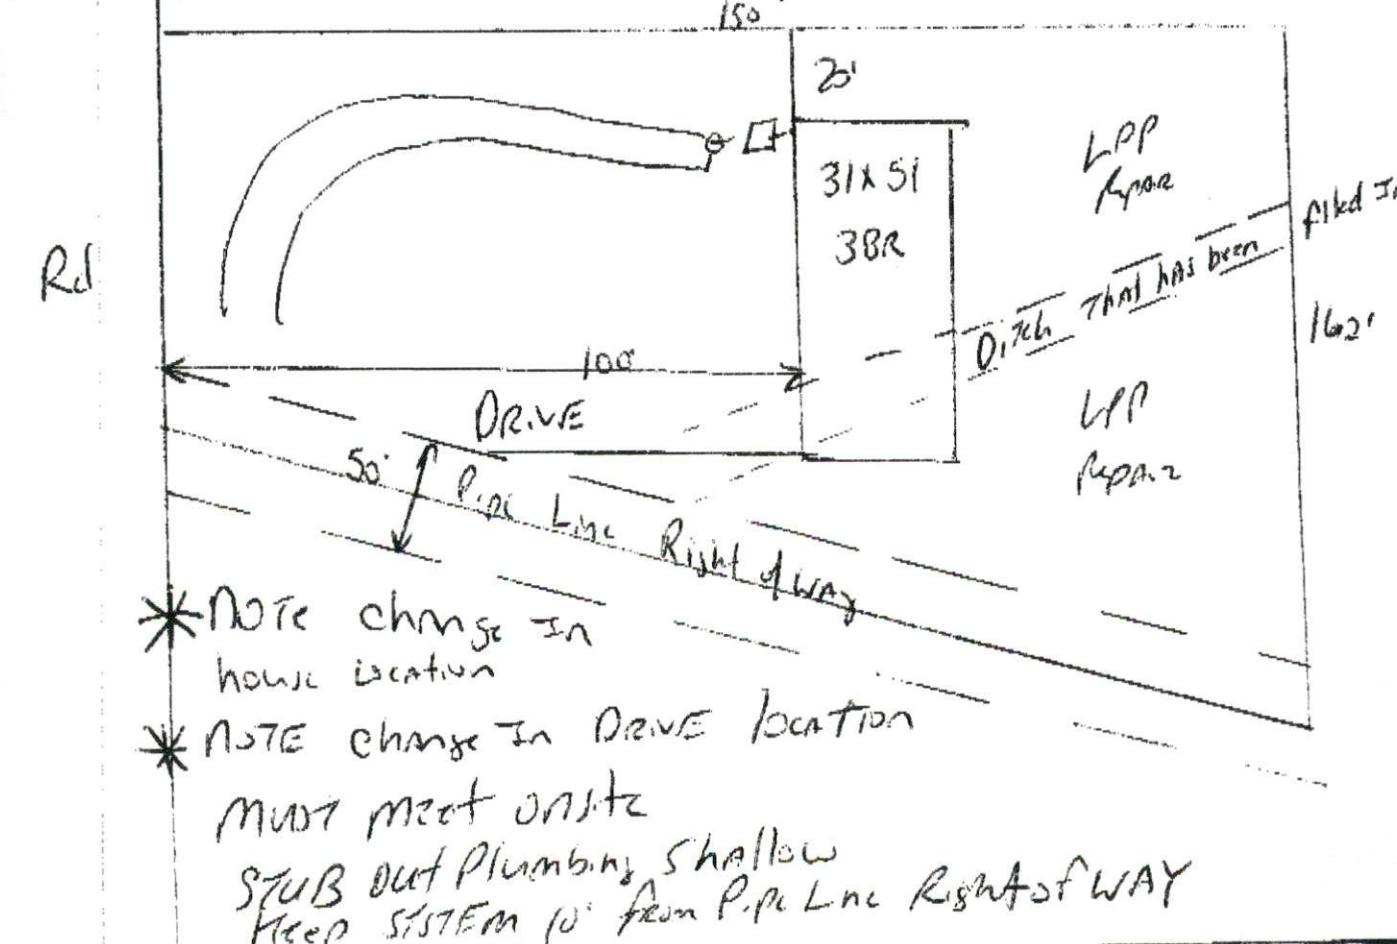 150'
20'
LPP
Repair
31x51
3BR
filled In
Ditch That has been
Rd
162'
100'
DRIVE
LPP
Repair
50'
Pipe Line Right of WAY
* NOTE change In
house location
* NOTE change In DRIVE location
MUST meet onsite
STUB Out Plumbing Shallow
Keep SYSTEM 10' from Pipe Line Right of WAY